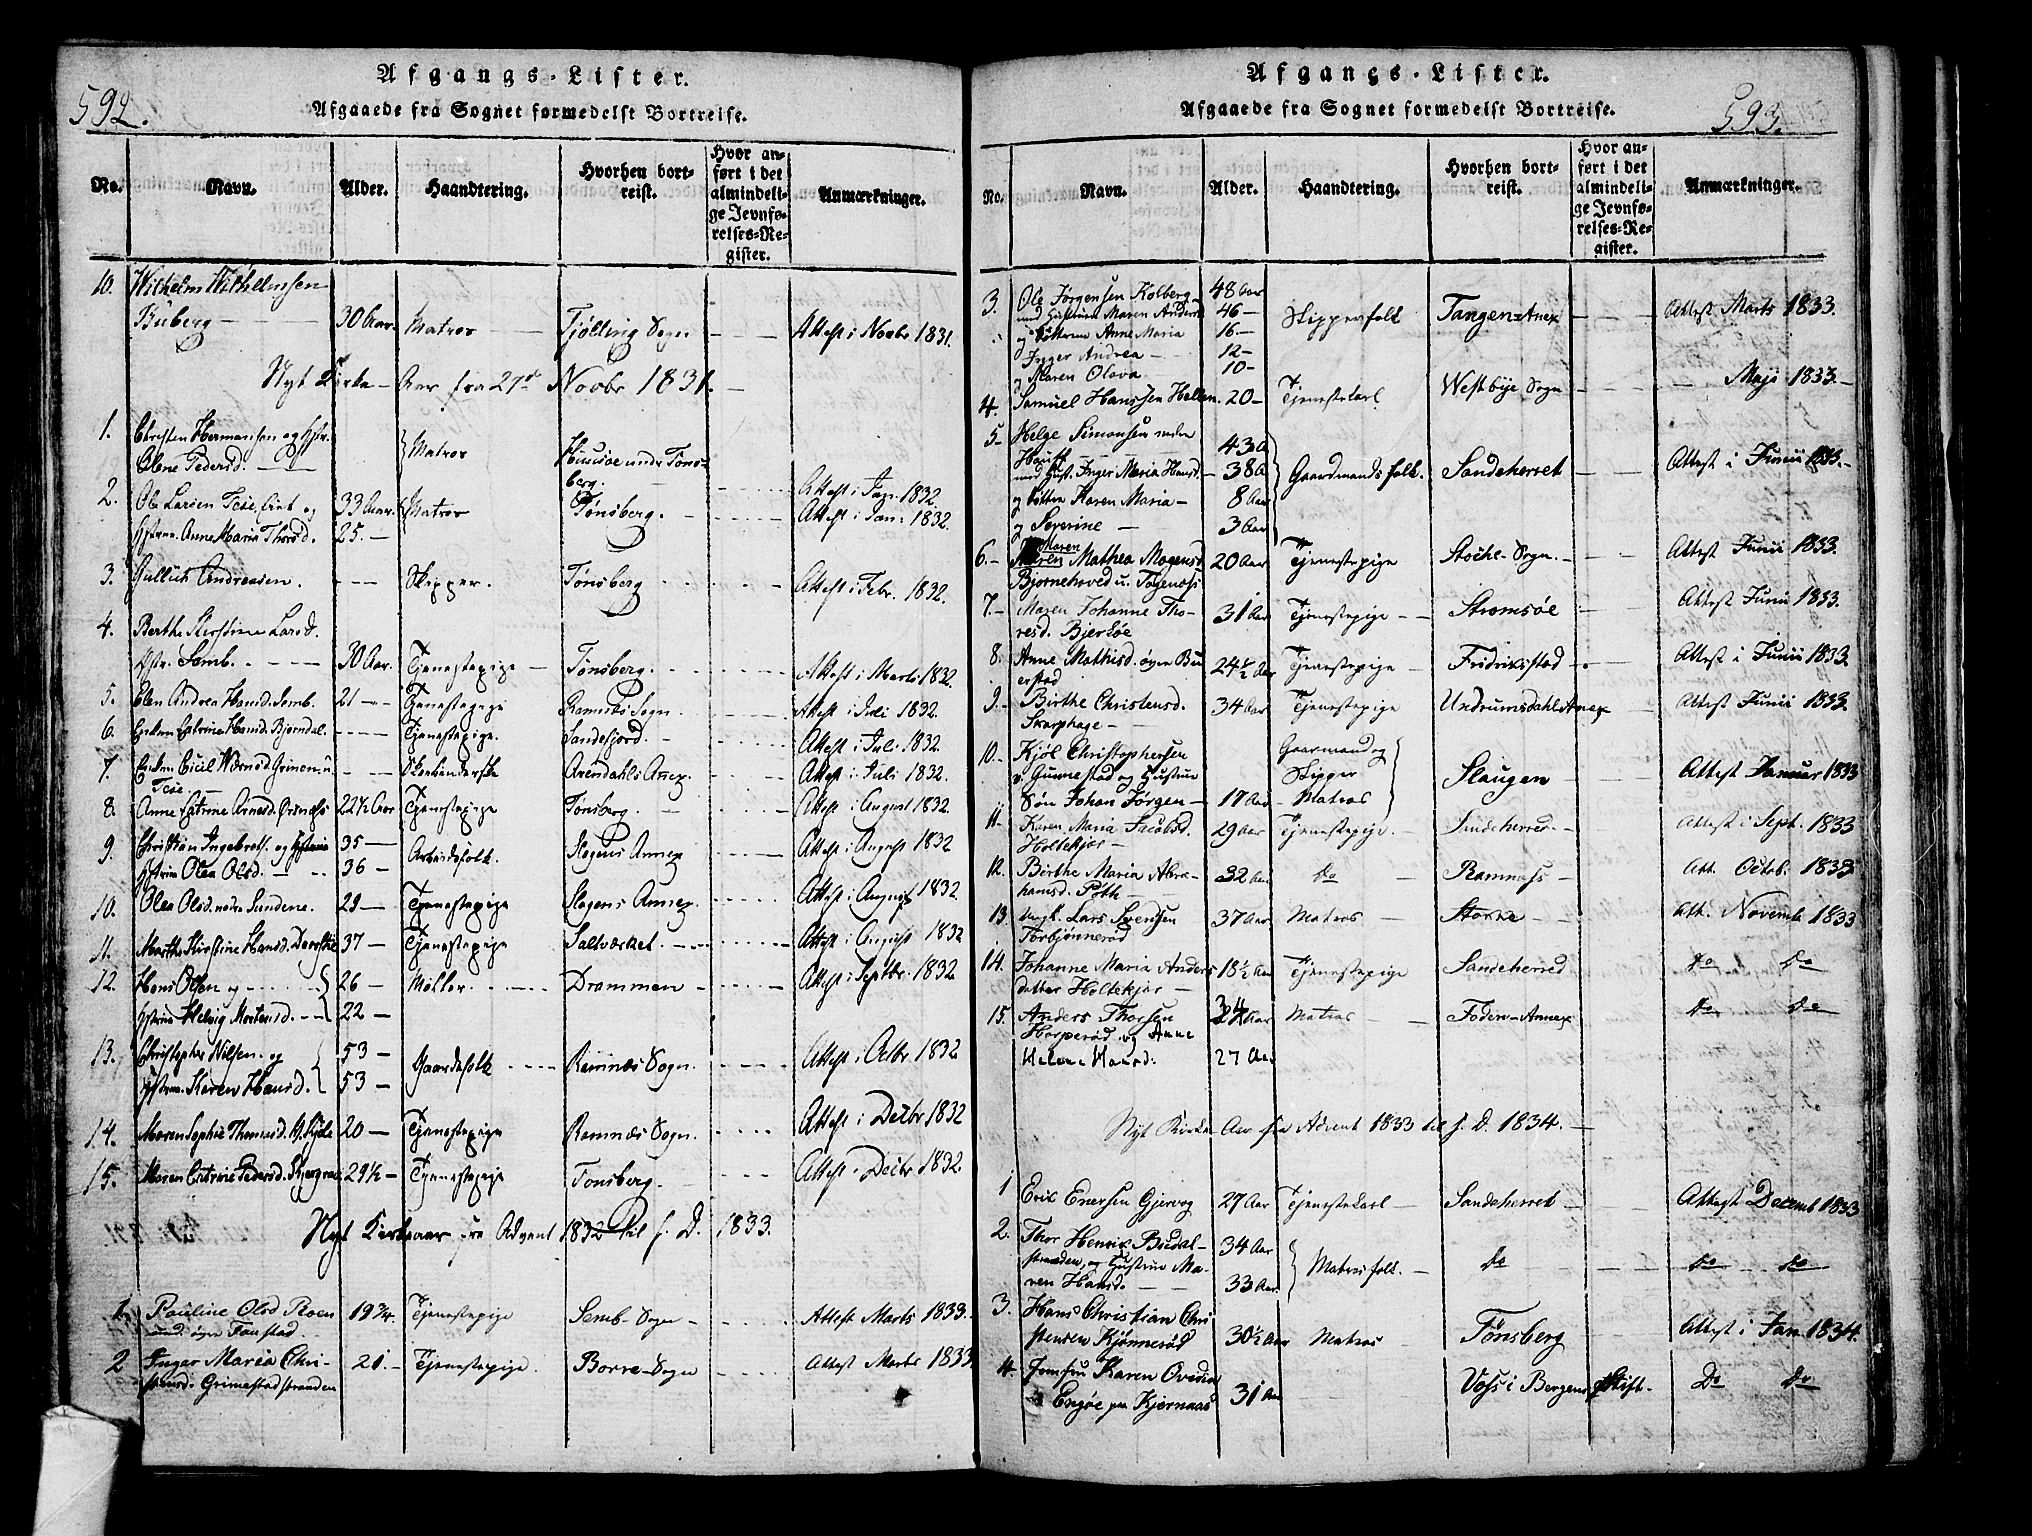 592.
Afgangs-Lister.
Afgaaede fra Sognet formedelst Bortreise.
No. Navn. Alder. Haandtering. Hvorhen bortreist. Hvor anført i det almindelige Jevnførelses-Register. Anmærkninger.
10. Wilhelm Wilhelmsen
Buberg 30 Aar. Matros Tjølling Sogn Attest i Novbr 1831.
Nyt Kirke-Aar fra 27de Novbr 1831.
1. Christen Hermansen og Hstr.
Olene Pedersd. Matros Huusøe under Tønsberg. Attest i Jan. 1832
2. Ole Larsen Teie, og 33 Aar. Matros Tønsberg. Attest i Jan. 1832.
Hstrue. Anne Maria Thorsd. 25.
3. Gullich Andreasen. Skipper. Tønsberg Attest i Febr. 1832.
4. Berthe Kirstine Larsd.
Semb. 30 Aar. Tjenestepige Tønsberg. Attest i Marts 1832.
5. Elen Andrea Hansd. Semb. 21 Tjenestepige Ramnæs Sogn. Attest i Juli 1832.
6. Enken Catrine Hansd. Bjørndal. Tjenestepige. Sandefjord. Attest i Juli 1832
7. Enken Cicil Grinen u.
Teie. Arendahls Annex. Attest i Juli 1832.
8. Anne Catrine Arnesd. 22½ Aar Tjenestepige Tønsberg. Attest i August 1832.
9. Christian Ingebretsn. og 35 Arbeidsfolk. Slagens Annex Attest i August 1832
Hstrue Olea Olsd. 36
10. Olea Olsd. nedre Sundene. 29 Tjenestepige Slagens Annex. Attest i August 1832.
11. Marthe Kirstine Hansd. 37 Tjenestepige Saltværket. Attest i August 1832
12. Hans Olsen og 26 Møller. Drammen Attest i Septbr. 1832
Hstrue Helvig Mortensd. 22
13. Christopher Nilsen. og 53 Gaardfolk Ramnæs Sogn. Attest i Octbr 1832
Hstrue. Karen Hansd. 53
14. Maren Sophie Thomasd. 20 Tjenestepige Ramnæs Sogn. Attest i Decbr 1832
15. Maren Catrine Pedersd. 29½ Tjenestepige Tønsberg. Attest i Decbr 1832.
Nyt Kirkeaar fra Advent 1832 til f. D. 1833.
1. Pauline Olsd Roen 19¾. Tjenestepige Semb-Sogn Attest Marts 1833.
øvre Foustad.
2 Inger Maria Chri- 21. Tjenestepige. Borre-Sogn Attest Marts 1833
stensd. Grimestadstranden
593.
Afgangs-Lister.
Afgaaede fra Sognet formedelst Bortreise.
No. Navn. Alder. Haandtering. Hvorhen bortreist. Hvor anført i det almindelige Jevnførelses-Register. Anmærkninger.
3. Ole Jørgensen Kolberg 48 Aar Skipperfolk Tangen-Anex Attest Marts 1833.
med Hustrue Maren Anders 46
og Døttrene Anne Maria 16
Inger Andrea 12
og Maren Olava 10
4. Samuel Hanssen Hellen 20 Tjenestekarl Westbye Sogn Maji 1833.
5 Helge Simonsen nedre 43 A Gaardmandsfolk. Sandeherret Attest i Junii 1833.
med Hust. Inger Maria Hansd. 38 A
og Dottre Karen Maria 8 Aar
og Severine 3 Aar
6. Maren Mathea Mogensd 20 Aar Tjenestepige Stocke-Sogn. Attest Junii 1833.
Bjørnehoved u.
7. Maren Johanne Tho- 31 Aar Tjenestepige Strømsøe Attest Junii 1833.
resd. Bjerkøe
8. Anne Mathisd. øvre Bu 24½ Aar Tjenestepige Fridrikstad Attest i Junii 1833.
erstad
9. Birthe Christensd. 34 Aar Tjenestepige Undrumsdahls Anex Attest Junii 1833.
Skarphage
10. Kjøl Christophersen Gaarmand og
v. Gunnestad og Hustrue Skipper Slaugen Attest Januar 1833
Søn Johan Jørgen 17 Aar Matros
11. Karen Maria Jacobsd. 29 Aar Tjenestepige. Sandeherred Attest i Sept. 1833
Holtekjær
12. Birthe Maria Abra- 32 Aar do Ramnæss Att. Octob. 1833
hamsd. Poth
13 Ungk. Lars Svensen 37 Aar Matros Storne Att. Novemb 1833
Torbjønnerød
14. Johanne Maria Anders 18½ Aar Tjenestepige Sandeherred do do
datter Holtekjær
15. Anders Thorsen 34 Aar Matros Foden-Annex do do
Horperød og Anne
Helene Hansd. 27 Aar
Nyt Kirke-Aar fra Advent 1833 til f. D. 1834.
1 Eric Enersen Gjerrog 27 Aar Tjenestekarl Sandeherret Attest Decemb 1833
2. Thor Henrik Budal- 34 Aar Matrosfolk. do do do
stranden, og Hustrue Ma-
ren Hansd. 33 Aar
3. Hans Christian Chri- 30½ Aar Matros Tønsberg Attest i Jan 1834.
stensen Kjønnerød
4. Jomfru Karen Ovedia 31 Aar Voss i Bergens Stift. do do
Engøe paa Kjernaas